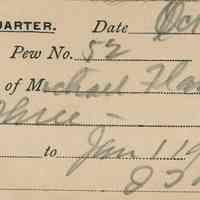 UARTER. Date Oct
Pew No. 52
of Michael Fla
Three —
to Jan 1 19